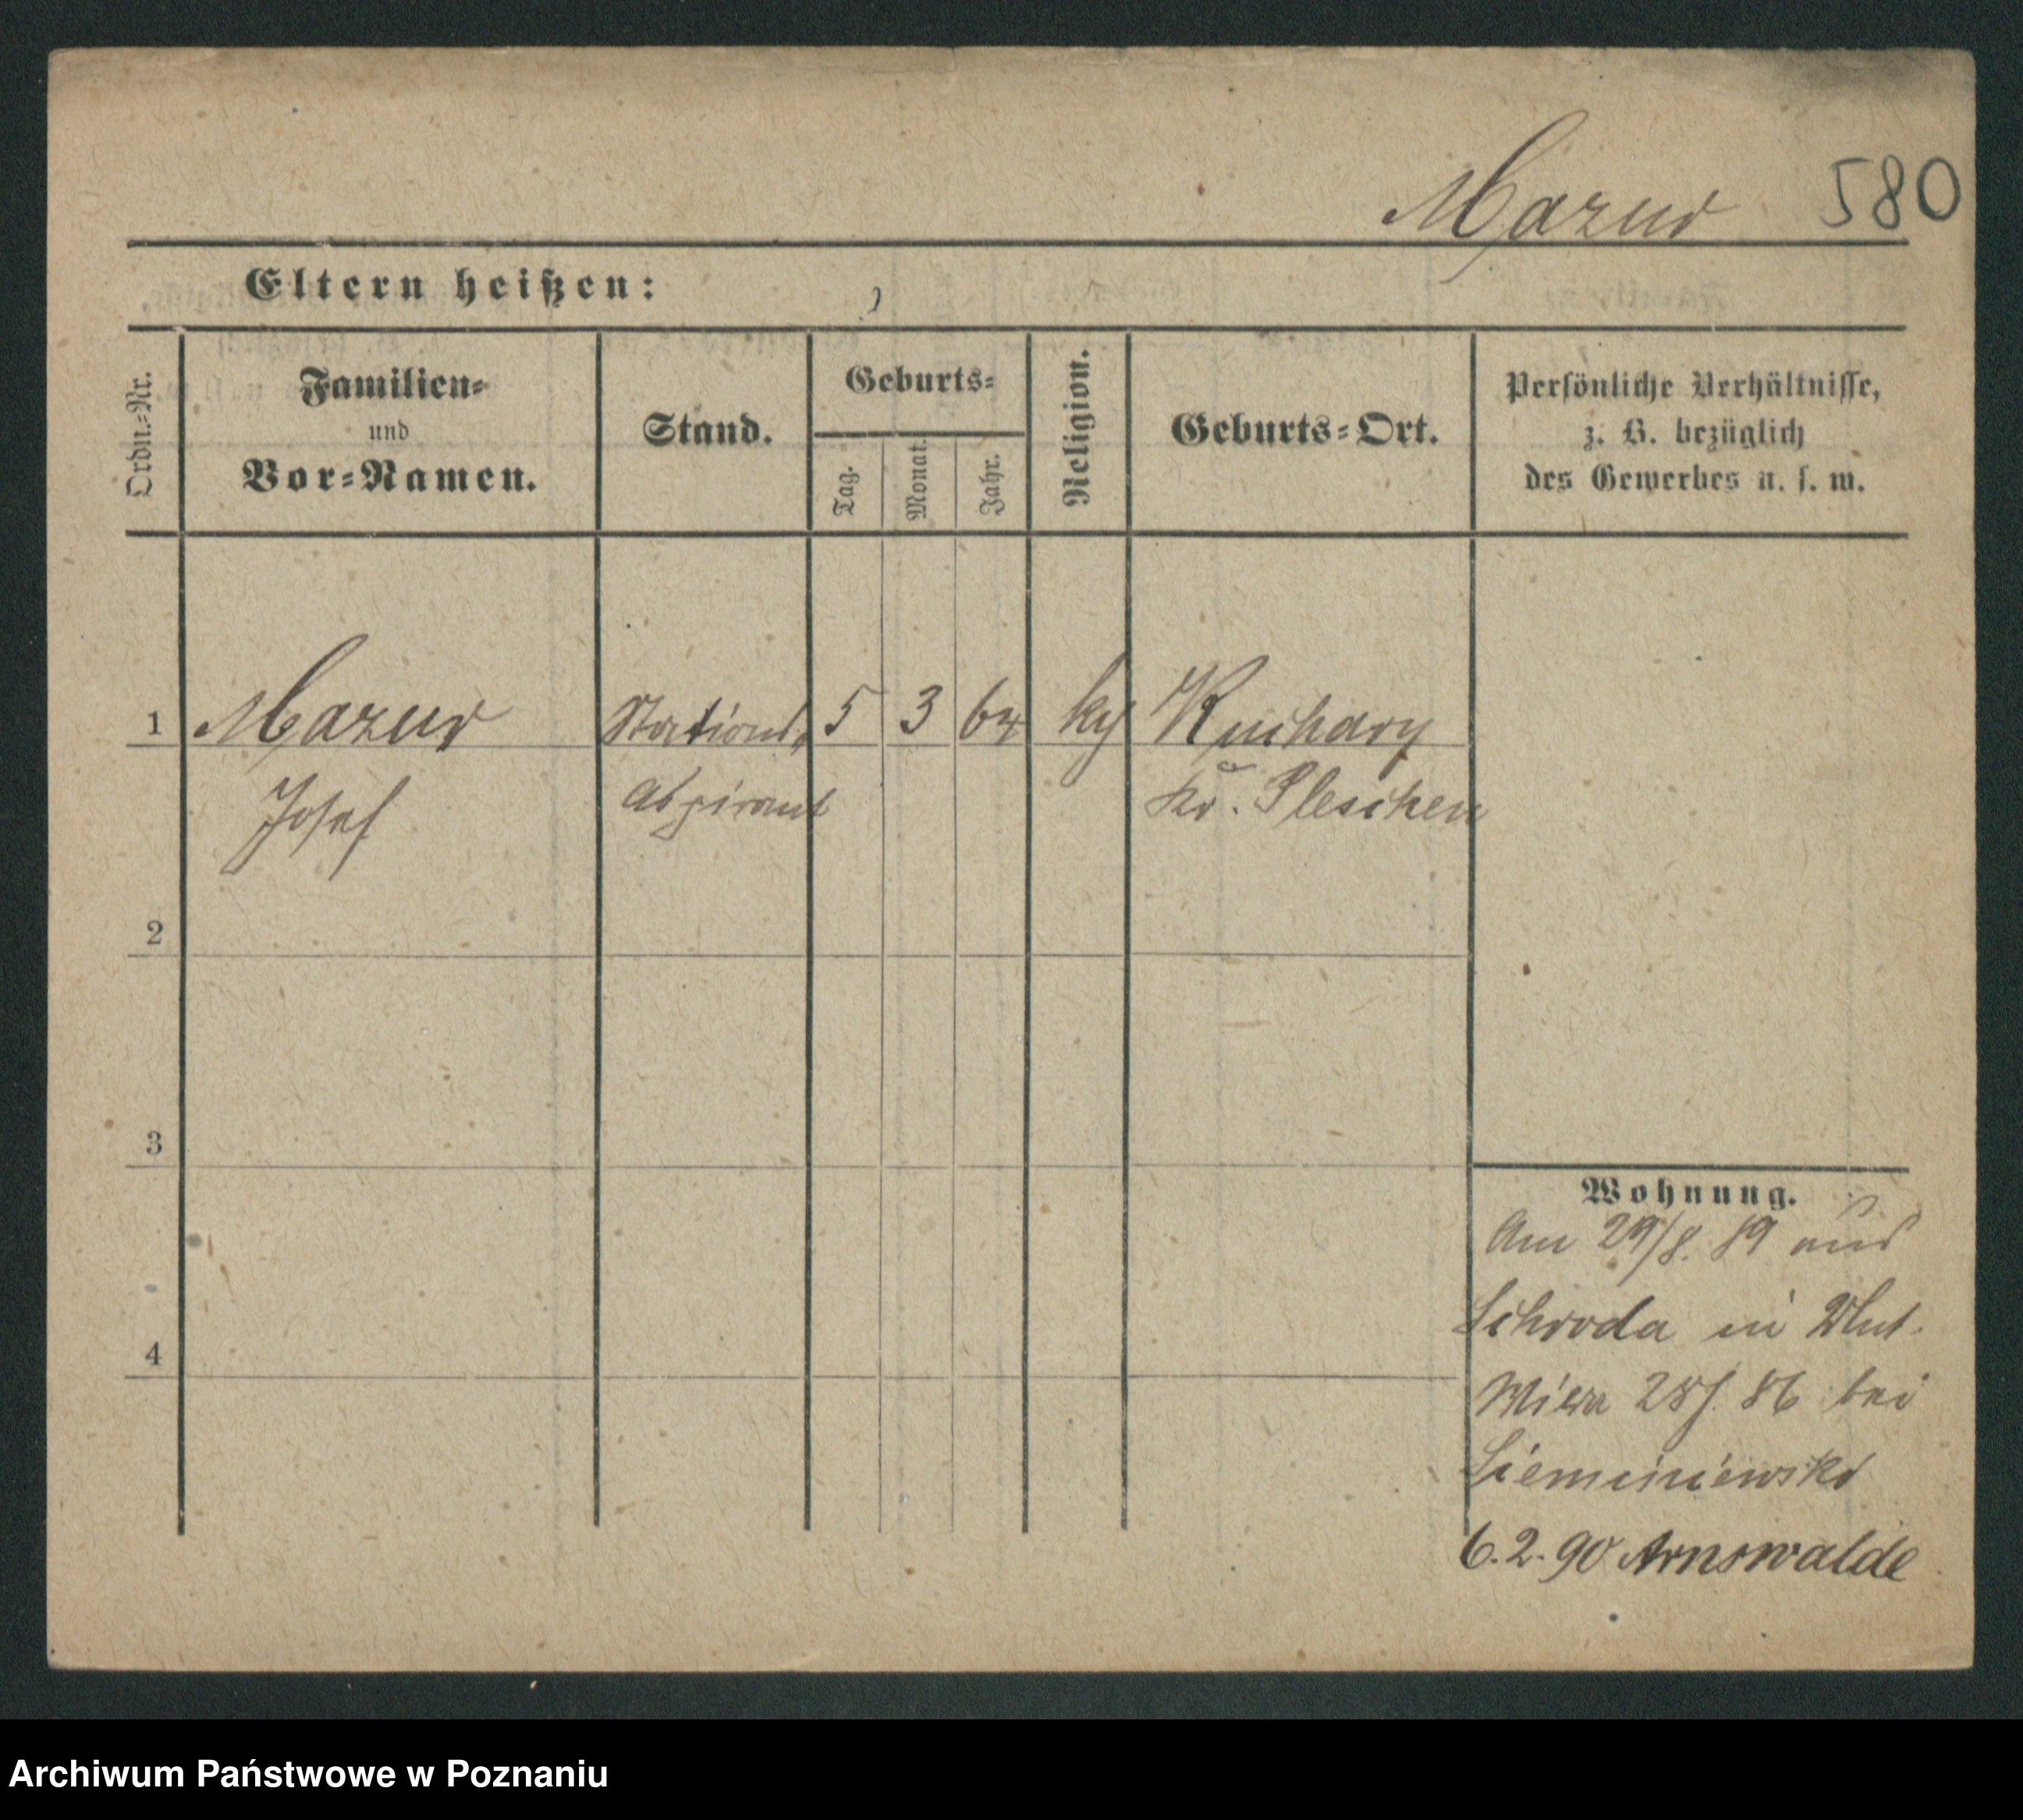 Mazur 580
Eltern heißen:
Ordn.-Nr.
Familien-
und
Vor-Namen.
Stand.
Geburts-
Tag.
Monat.
Jahr.
Religion.
Geburts-Ort.
Persönliche Verhältnisse,
z. B. bezüglich
des Gewerbes u. s. w.
1 Mazur Stations 5 3 64 Kuchary
Josef Aspirant Kr. Pleschen
2
3
4
Wohnung.
Am 29/8. 89 aus
Schroda in
86 bei
6.2.90 Arnswalde
Archiwum Państwowe w Poznaniu